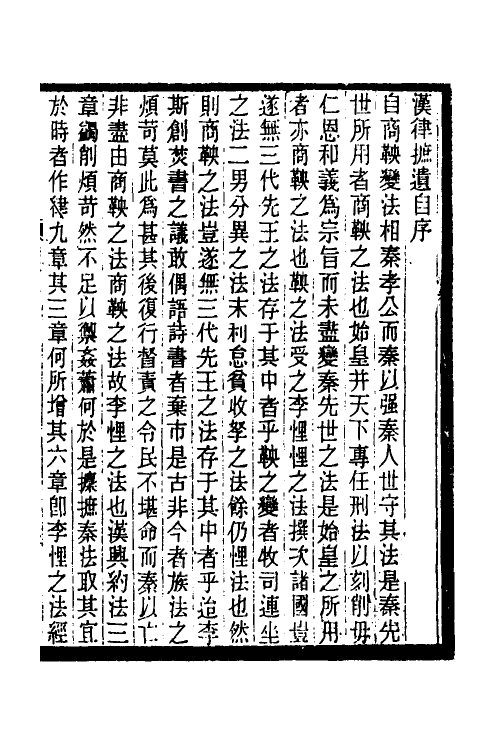 漢律摭遺自序
自商鞅變法相秦孝公而秦以强秦人世守其法是秦先
世所用者商鞅之法也始皇并天下專任刑法以刻削毋
仁恩和義爲宗旨而未盡變秦先世之法是始皇之所用
者亦商鞅之法也鞅之法受之李悝悝之法撰次諸國豈
遂無三代先王之法存于其中者乎鞅之變者牧司連坐
之法二男分異之法末利怠貧收孥之法餘仍悝法也然
則商鞅之法豈遂無三代先王之法存于其中者乎迨李
斯創焚書之議敢偶語詩書者棄市是古非今者族法之
煩苛莫此爲甚其後復行督責之令民不堪命而秦以亡
非盡由商鞅之法商鞅之法故李悝之法也漢興約法三
章蠲削煩苛然不足以禦姦蕭何於是攗摭秦法取其宜
於時者作律九章其三章何所增其六章卽李悝之法經